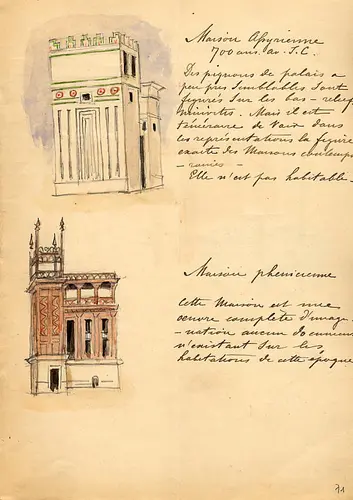 Maison Assyrienne
700 ans. av. J. C.
Des pignons de palais a
peu près semblables sont
figurés sur les bas-reliefs
ninivites. Mais il est
téméraire de voir dans
ces représentations la figure
exacte des Maisons contemp-
-raines -
Elle n'est pas habitable -
Maison phenicienne
Cette Maison est une
œuvre complete d'imagi-
-nation aucun document
n'existant sur les
habitations de cette époque
71